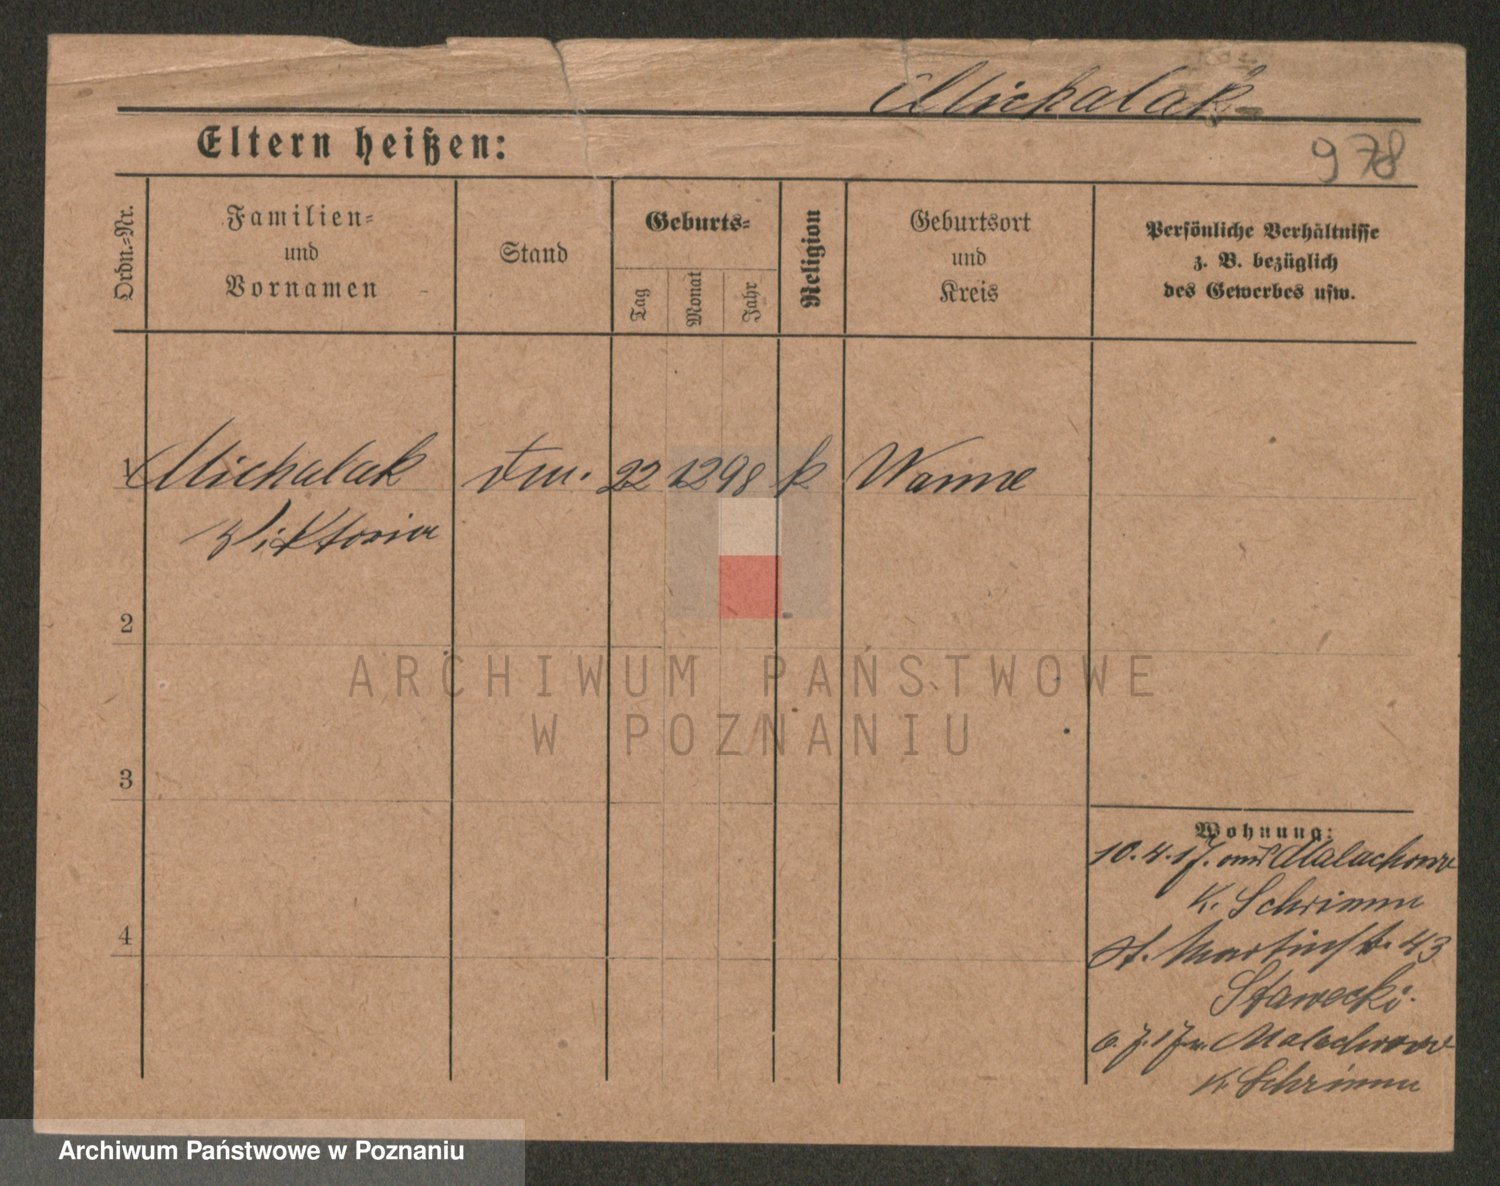 Michalak
Eltern heißen:
978
Ordn.=Nr.
Familien=
und
Vornamen
Stand
Geburts=
Tag
Monat
Jahr
Religion
Geburtsort
und
Kreis
Persönliche Verhältnisse
z. B. bezüglich
des Gewerbes usw.
1 Michalak 22 12 98 k Wanne
Viktoria
2
3
4
ARCHIWUM PAŃSTWOWE
W POZNANIU
Wohnung:
10.4.17. Malachowo
K. Schrimm
St. Martinstr. 43
Stawecki.
6.7.17 n. Malachowo
K. Schrimm
Archiwum Państwowe w Poznaniu